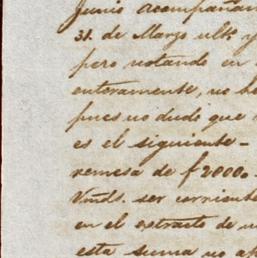 Junio acompañan
31. de Marzo ult. y
pero notando en
enteramente, no he
pues no dudo que
es el siguiente-
remesa de f 2000.-
Vmds. ser corriente
en el extracto de
esta suma no